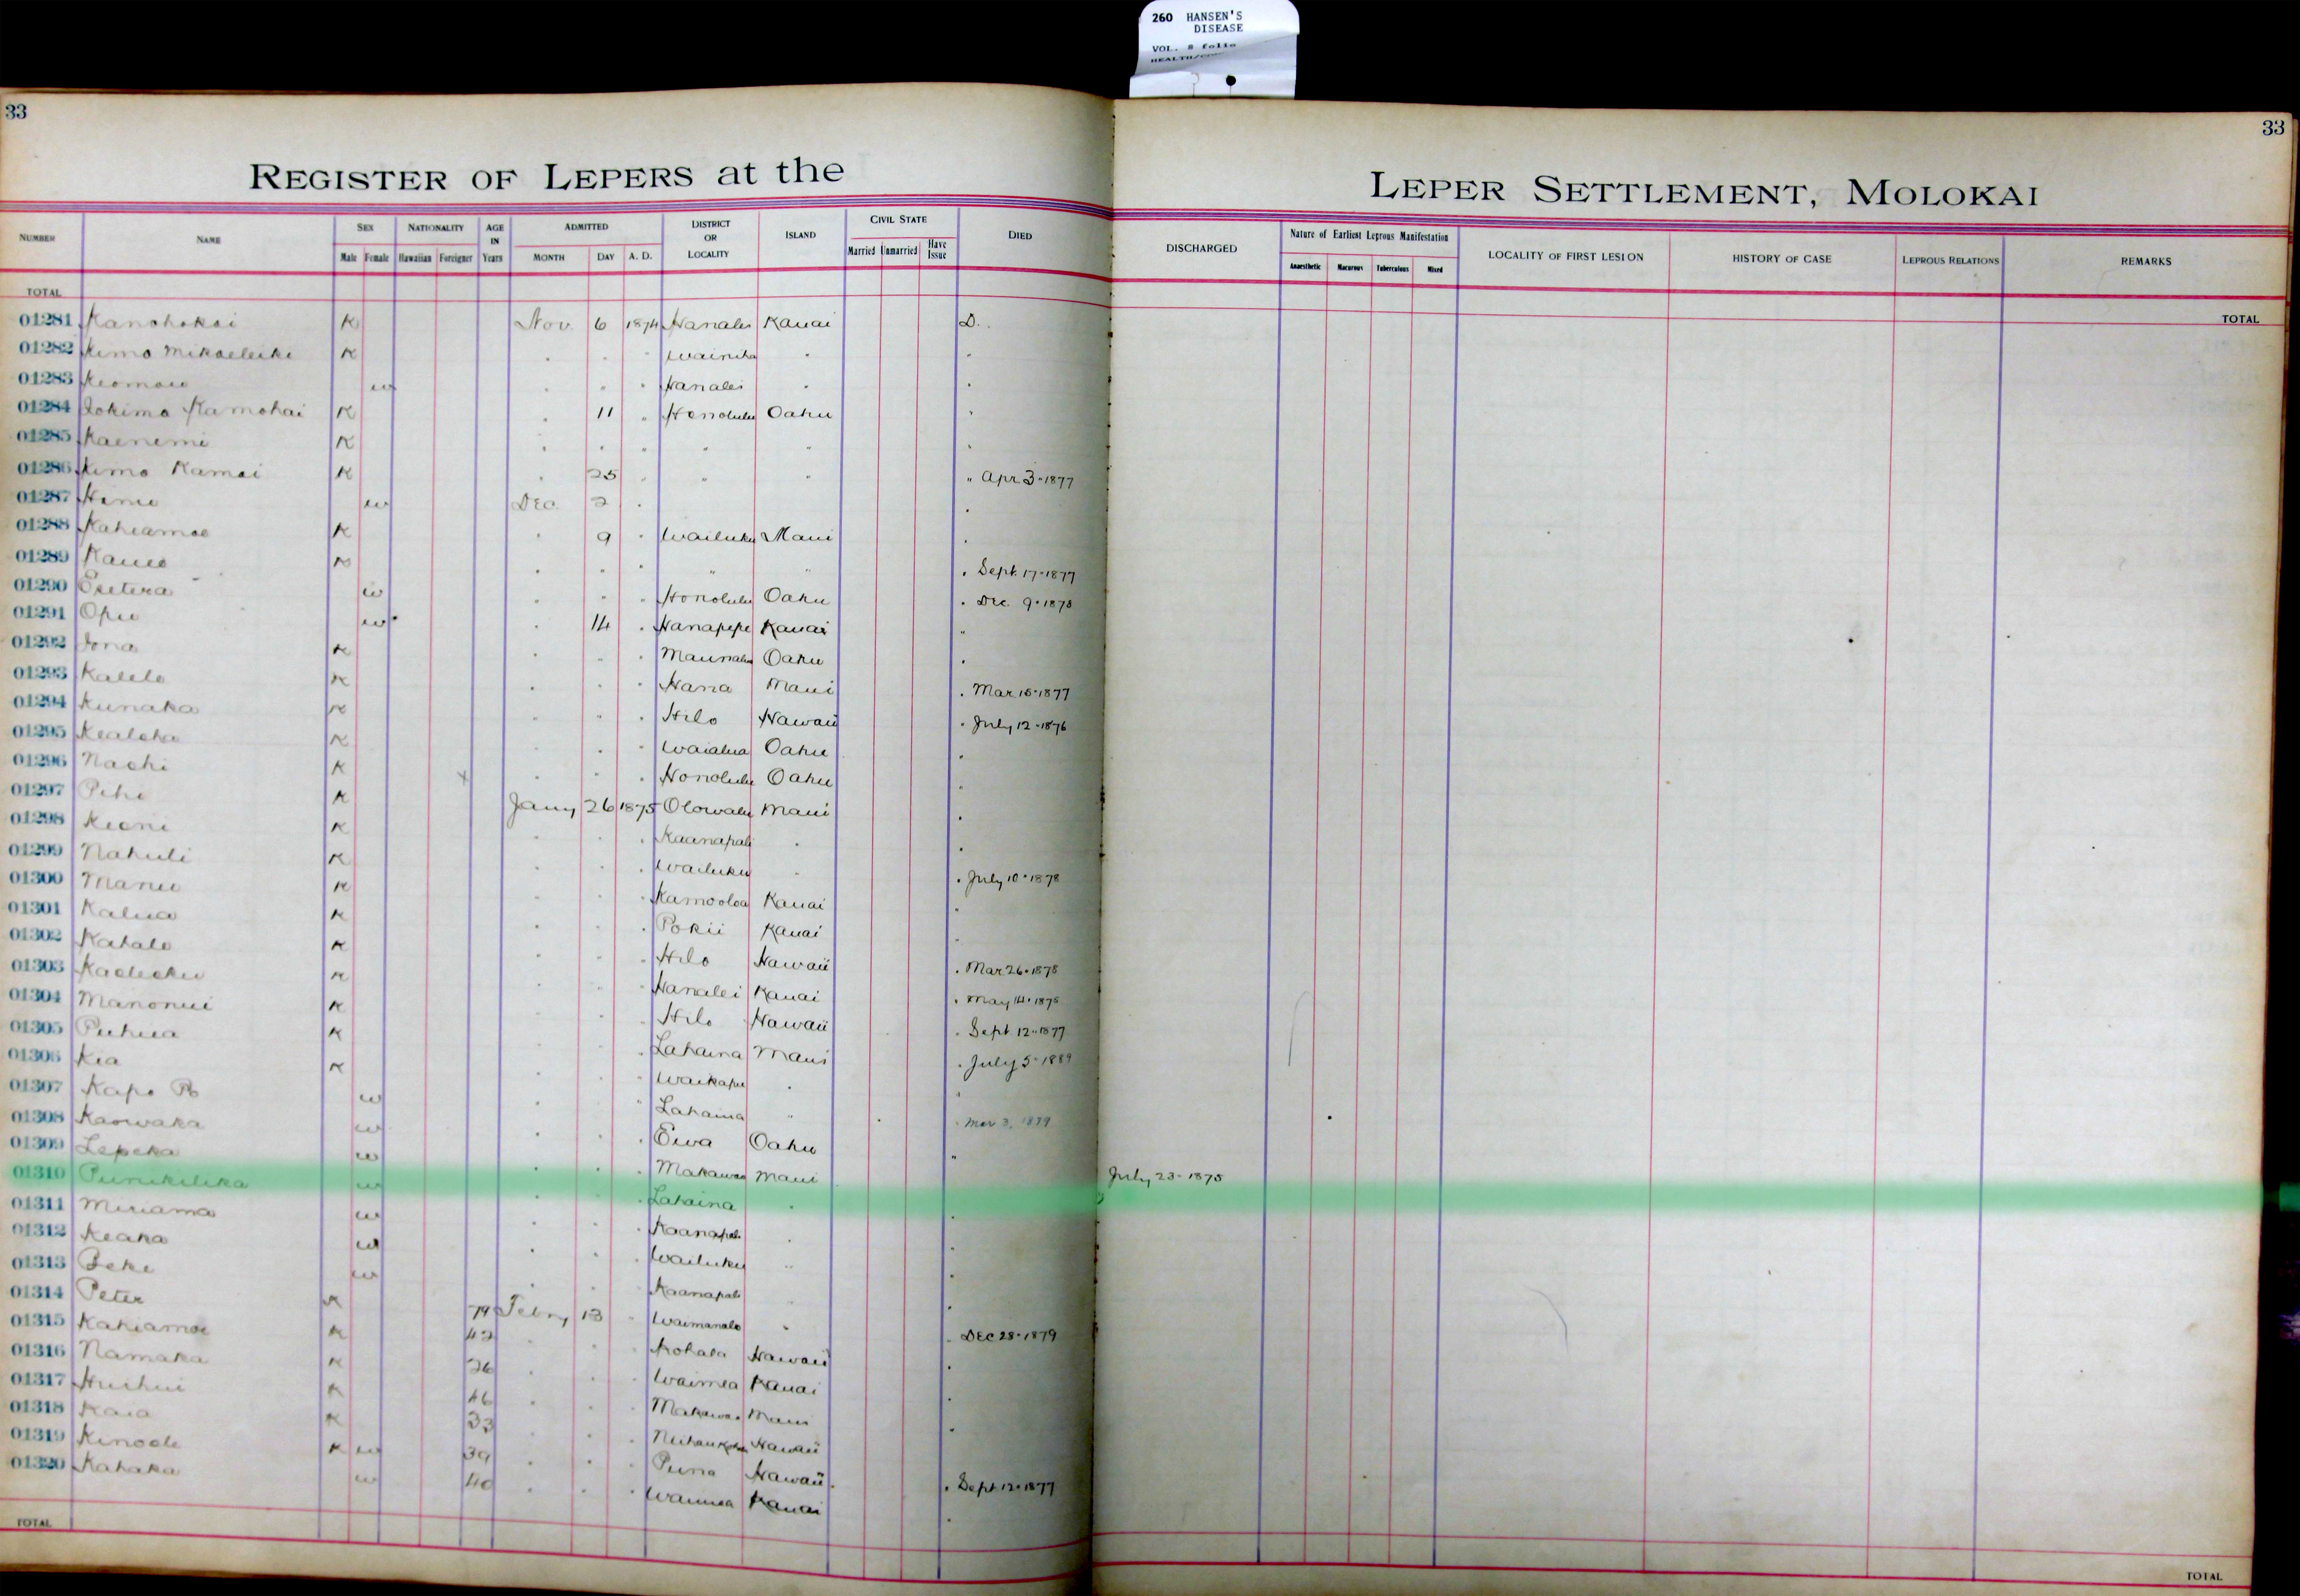 260 HANSEN'S
DISEASE
VOL. 8 folio
33
33
REGISTER OF LEPERS at the LEPER SETTLEMENT, MOLOKAI
NUMBER NAME SEX Male Female NATIONALITY Hawaiian Foreigner AGE IN Years ADMITTED MONTH DAY A. D. DISTRICT OR LOCALITY ISLAND CIVIL STATE Married Unmarried Have Issue DIED DISCHARGED Nature of Earliest Leprous Manifestation Anaesthetic Macurous Tuberculous Mixed LOCALITY OF FIRST LESION HISTORY OF CASE LEPROUS RELATIONS REMARKS
TOTAL TOTAL
01281 Kanohokai K Nov. 6 1874 Hanalei Kauai D.
01282 Kimo Mikaeleike K " " " Wainiha " "
01283 Keomau w " " " Hanalei " "
01284 Iokimo Kamohai K " 11 " Honolulu Oahu "
01285 Kaenemi K " " " " " "
01286 Kimo Kamai K " 25 " " " " Apr 3-1877
01287 Hanu w Dec. 2 " "
01288 Kahiamoe K " 9 " Wailuku Maui "
01289 Kaueo K " " " " " " Sept. 17-1877
01290 Esetera w " " " Honolulu Oahu " Dec. 9-1878
01291 Opu w " 14 " Hanapepe Kauai "
01292 Iona K " " " Maunalua Oahu "
01293 Kalelo K " " " Hana Maui " Mar 15-1877
01294 Kunaka K " " " Hilo Hawaii " July 12-1876
01295 Kealoha K " " " Waialua Oahu "
01296 Naehi K x " " " Honolulu Oahu "
01297 Pihi K Jany 26 1875 Olowalu Maui "
01298 Keoni K " " " Kaanapali " "
01299 Nahuli K " " " Wailuku " " July 10-1878
01300 Manu K " " " Kamooloa Kauai "
01301 Kalua K " " " Pokii Kauai "
01302 Kahalo K " " " Hilo Hawaii " Mar 26-1878
01303 Kaeleku K " " " Hanalei Kauai " May 14-1875
01304 Manonui K " " " Hilo Hawaii " Sept 12-1877
01305 Puhua K " " " Lahaina Maui " July 5-1889
01306 Kia K " " " Waikapu " "
01307 Kapo Po w " " " Lahaina " " Mar 3, 1879
01308 Kaowaka w " " " Ewa Oahu "
01309 Lepeka w " " " Makawao Maui July 23-1875
01310 Punikilika w " " " Lahaina " "
01311 Miriama w " " " Kaanapali " "
01312 Keaka w " " " Wailuku " "
01313 Beke w " " " Kaanapali " "
01314 Peter K 79 Febry 13 " Waimanalo " " Dec 28-1879
01315 Kahiamoe K 42 " " " Kohala Hawaii "
01316 Namaka K 26 " " " Waimea Kauai "
01317 Huihui K 46 " " " Makawao Maui "
01318 Kaia K 33 " " " Hawaii
01319 Kinoole K w 39 " " " Puna Hawaii " Sept 12-1877
01320 Kahaka w 40 " " " Waimea Kauai "
TOTAL TOTAL